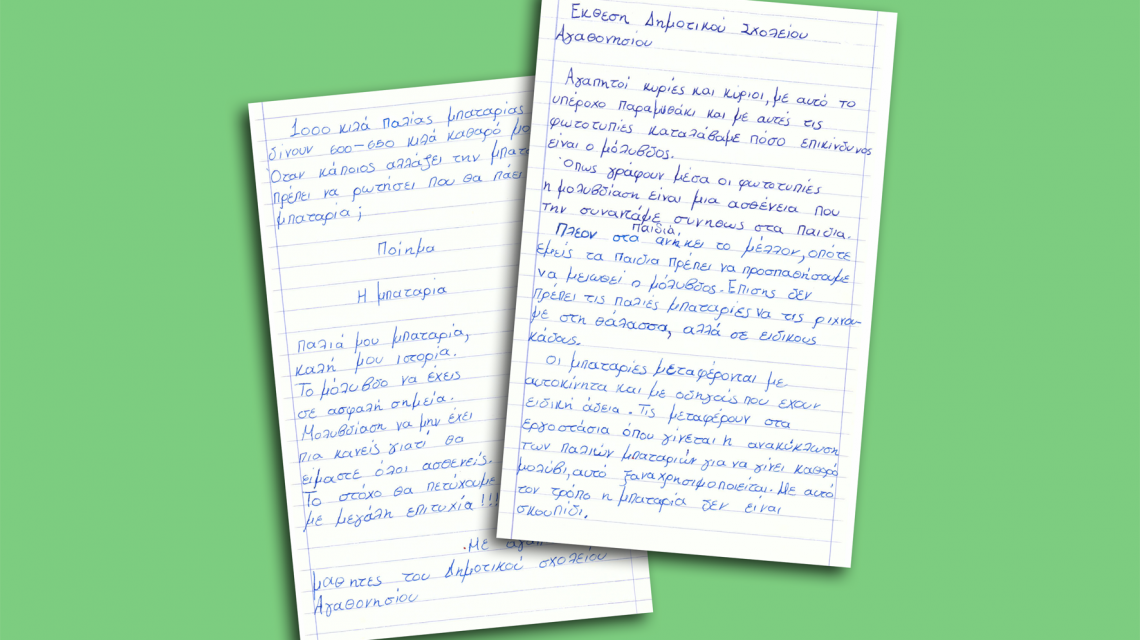 1000 κιλά παλιάς μπαταρίας
δίνουν 600-650 κιλά καθαρό
Όταν κάποιος αλλάξει την
πρέπει να ρωτήσει που θα πάει
μπαταρία;
Ποίημα
Η μπαταρία
Παλιά μου μπαταρία,
καλή μου ιστορία.
Το μόλυβδο να έχεις
σε ασφαλή σημεία.
Μολυβδίαση να μην έχει
πια κανείς γιατί θα
είμαστε όλοι ασθενείς.
Το στόχο θα πετύχουμε
με μεγάλη επιτυχία!!!
.Με
μαθητες του Δημοτικού σχολείου
Αγαθονησίου
Εκθεση Δημοτικού Σχολείου
Αγαθονησίου
Αγαπητοί κυρίες και κύριοι, με αυτό το
υπέροχο παραμυθάκι και με αυτές τις
φωτοτυπίες καταλάβαμε πόσο επικίνδυνος
είναι ο μόλυβδος.
Όπως γράφουν μέσα οι φωτοτυπίες
η μολυβδίαση είναι μια ασθένεια που
την συναντάμε συνηθως στα παιδια.
Πλεον στα παιδιά ανήκει το μέλλον, οπότε
εμείς τα παιδια πρέπει να προσπαθήσουμε
να μειωθεί ο μόλυβδος. Επισης δεν
πρέπει τις παλιές μπαταρίες να τις ριχνου-
με στη θάλασσα, αλλά σε ειδικους
κάδους.
Οι μπαταρίες μεταφέρονται με
αυτοκίνητα και με οδηγούς που εχουν
ειδική άδεια. Τις μεταφέρουν στα
εργοστάσια όπου γίνεται η ανακύκλωση
των παλιών μπαταριών για να γίνει καθαρό
μολύβι, αυτό ξαναχρησιμοποιείται. Με αυτό
τον τρόπο η μπαταρία δεν είναι
σκουπίδι.